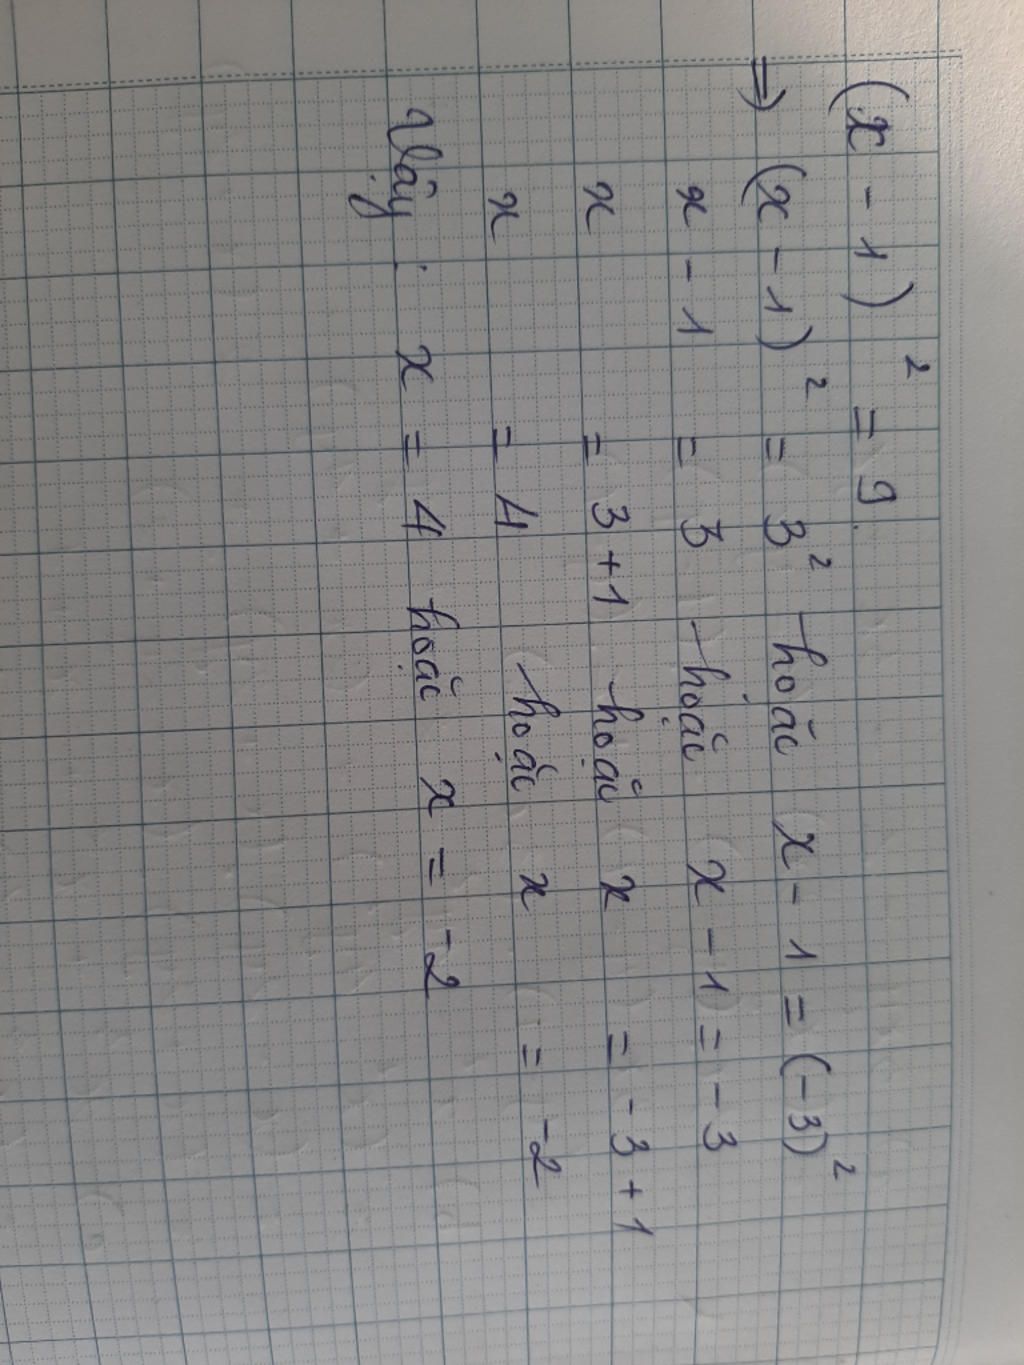 (x - 1)² = 9.
⇒ (x - 1)² = 3² hoăc x - 1 = (-3)²
x - 1 = 3 hoặc x - 1 = -3
x = 3 + 1 hoặc x = -3 + 1
x = 4 hoặc x = -2
Vậy : x = 4 hoặc x = -2